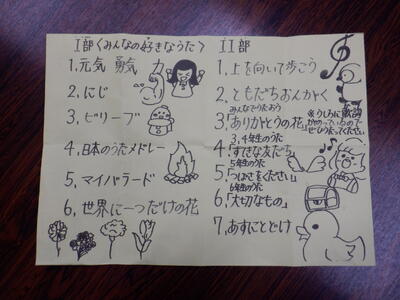 I部〈みんなの好きなうた〉
1.元気 勇気 力
2.にじ
3.ビリーブ
4.日本のうたメドレー
5.マイバラード
6.世界に一つだけの花
II部
1.上を向いて歩こう
2.ともだちおんがく
みんなでうたおう
3.「ありがとうの花」
※うしろに歌詞
がのっているので
ぜひ歌ってください。
3,4年生のうた
4.「すてきな友だち」
5年生のうた
5.「つばさをください」
6年生のうた
6.「大切なもの」
7.あすにとどけ